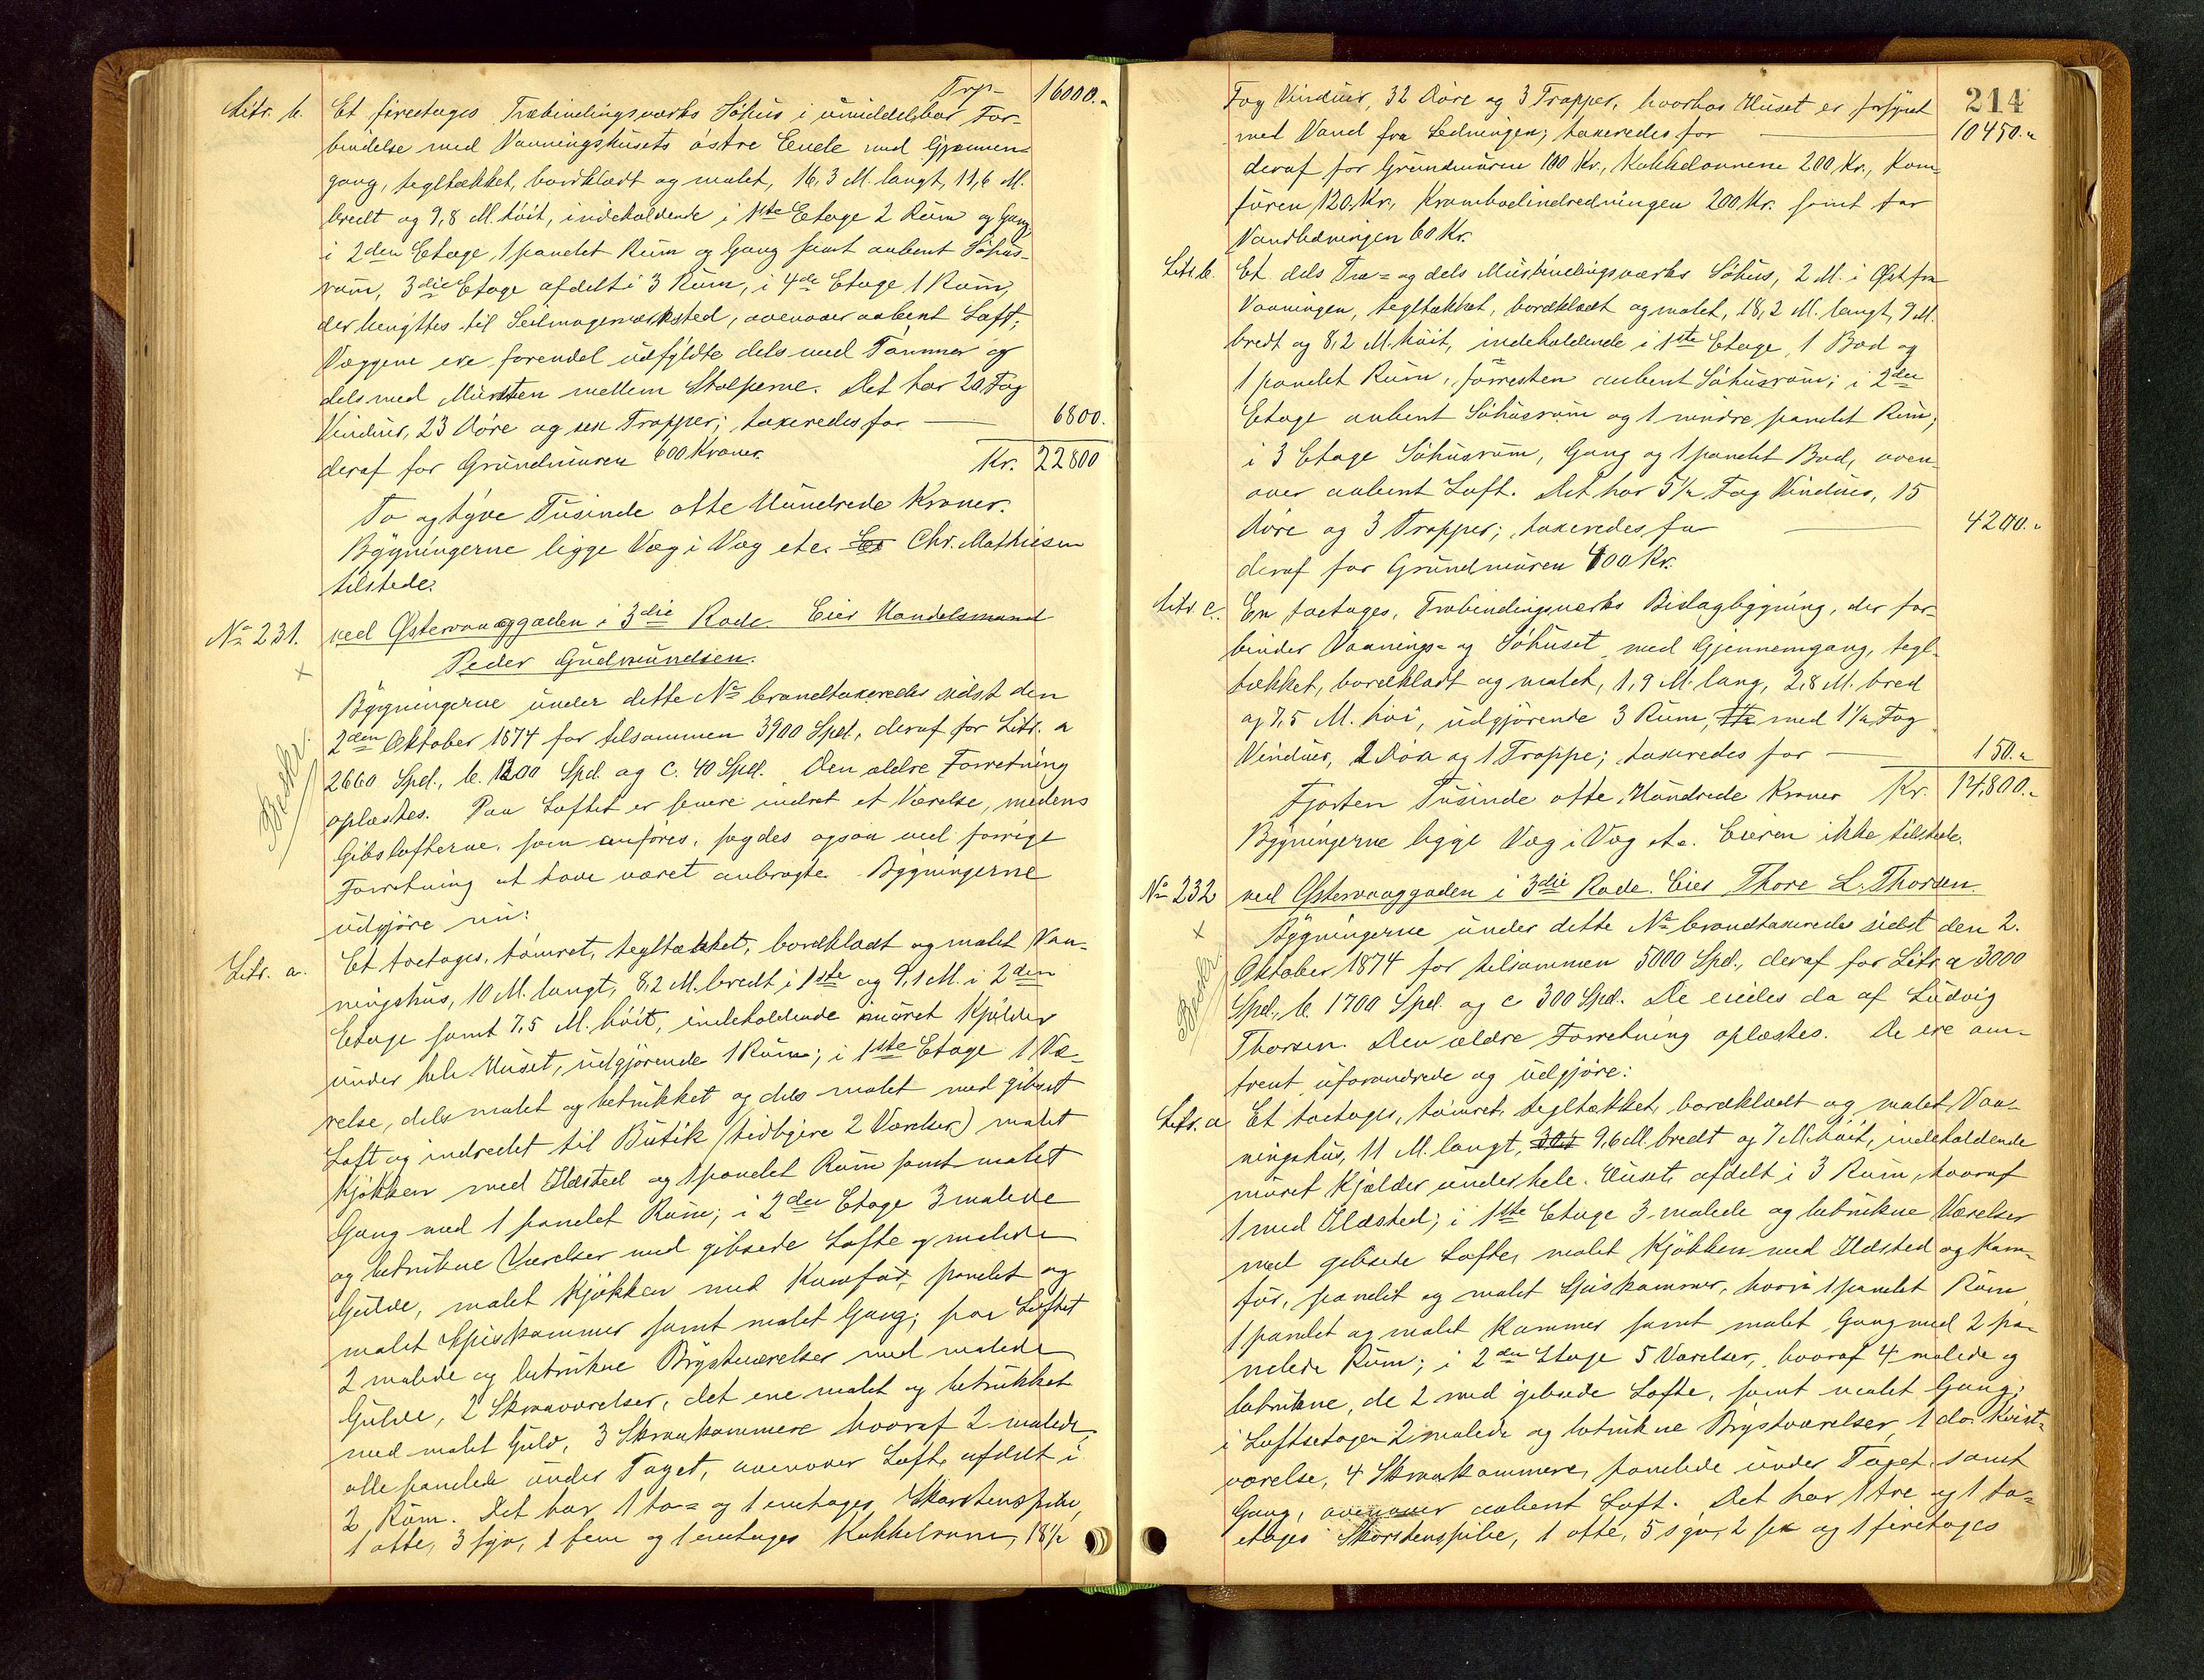 Trp- 16000.-
Litr. b. Et firetages Træbindingsværks Söhus i umiddelbar For-
bindelse med Vaaningshusets östre Ende med Gjennem-
gang, tegltækket, bordklædt og malet, 16,3 M. langt, 11,6 M.
bredt og 9,8 M. höit, indeholdende i 1ste Etage 2 Rum og Gang,
i 2den Etage, 1 panelet Rum og Gang samt aabent Söhus-
rum, 3die Etage afdelt i 3 Rum, i 4de Etage 1 Rum,
der benyttes til Seilmagerværksted, ovenover aabent Loft;
Væggene ere forendel udfyldte dels med Tömmer og
dels med Mursten mellem Stolperne. Det har 20 Fag
Vinduer, 23 Döre og sex Trapper; taxeredes for 6800.
deraf for Grundmuren 600 Kroner. Kr. 22800
To og tyve Tusinde otte Hundrede Kroner.
Bygningerne ligge Væg i Væg etc. Chr. Mathiesen
tilstede.
No 231. ved Østervaaggaden i 3die Rode. Eier Handelsmand
Peder Gudmundsen.
Bygningerne under dette No brandtaxeredes sidst den
2den Oktober 1874 for tilsammen 3900 Spd., deraf for Litr. a
2660 Spd., b. 1200 Spd. og c. 40 Spd. Den ældre Forretning
Beskr.
oplæstes. Paa Loftet er senere indret et Værelse, medens
Gibslofterne, som anföres, sagdes ogsaa ved forrige
Forretning at have været anbragte. Bygningerne
udgjöre nu:
Litr. a. Et toetages, tömret, tegltækket, bordklædt og malet Vaa-
ningshus, 10 M. langt, 8,2 M. bredt i 1ste og 9,1 M. i 2den
Etage samt 7,5 M. höit, indeholdende muret Kjelder
under hele Huset, udgjörende 1 Rum; i 1ste Etage 1 Væ-
relse, dels malet og betrukket og dels malet med gibset
Loft og indredet til Butik (tidligere 2 Værelser) malet
Kjökken med Ildsted og 1 panelet Rum samt malet
Gang med 1 panelet Rum; i 2den Etage 3 malede
og betrukne Værelser med gibsede Lofte og malede
Gulve, malet Kjökken med Komfur, panelet og
malet Spiskammer samt malet Gang; paa Loftet
2 malede og betrukne Brystværelser med malede
Gulve, 2 Skraaværelser, det ene malet og betrukket
med malet Gulv, 3 Skraakammere hvoraf 2 malede
alle panelede under Taget, ovenover Loft, afdelt i
2 Rum. Det har 1 to- og 1 enetages Skorstenspibe,
1 otte, 3 syv, 1 fem og 1 enetages Kakkelovne, 18 1/2
214
Fag Vinduer, 32 Döre og 3 Trapper, hvorhos Huset er forsynet
med Vand fra Ledningen; taxeredes for 10450.-
deraf for Grundmuren 100 Kr., Kakkelovnene 200 Kr., Kom-
furen 120 Kr., Krambodindredningen 200 Kr. samt for
Vandledningen 60 Kr.
Litr. b. Et dels Træ- og dels Murbindingsværks Söhus, 2 M. i Øst fra
Vaaningen, tegltækket, bordklædt og malet, 18,2 M. langt, 9 M.
bredt og 8,2 M. höit, indeholdende i 1ste Etage, 1 Bod og
1 panelet Rum, forresten aabent Söhusrum; i 2den
Etage aabent Söhusrum og 1 mindre panelet Rum;
i 3 Etage Söhusrum, Gang og 1 panelet Bod, oven-
over aabent Loft. Det har 5 1/2 Fag Vinduer, 15
Döre og 3 Trapper; taxeredes for 4200.-
deraf for Grundmuren 400 Kr.
Litr. c. En toetages, Træbindingsværks Bislagbygning, der for-
binder Vaanings- og Söhuset med Gjennemgang, tegl-
tækket, bordklædt og malet, 1,9 M. lang, 2,8 M. bred
og 7,5 M. höi, udgjörende 3 Rum, med 1 1/2 Fag
Vinduer, 2 Döre og 1 Trappe; taxeredes for 150.-
Fjorten Tusinde otte Hundrede Kroner Kr. 14,800.-
Bygningerne ligge Væg i Væg etc. Eieren ikke tilstede.
No 232 ved Østervaaggaden i 3die Rode. Eier Thore L. Thorsen
Bygningerne under dette No brandtaxeredes sidst den 2.
Oktober 1874 for tilsammen 5000 Spd., deraf for Litr. a 3000
Beskr.
Spd., b. 1700 Spd. og c 300 Spd. De eiedes da af Ludvig
Thorsen. Den ældre Forretning oplæstes. De ere om-
trent uforandrede og udgjöre:
Litr. a Et toetages, tömret, tegltækket, bordklædt og malet Vaa-
ningshus, 11 M. langt, 9,6 M. bredt og 7 M. höit, indeholdende
muret Kjelder under hele Huset, afdelt i 3 Rum, hvoraf
1 med Ildsted; i 1ste Etage 3 malede og betrukne Værelser
med gibsede Lofte, malet Kjökken med Ildsted og Kom-
fur, panelet og malet Spiskammer, hvori 1 panelet Rum
1 panelet og malet Kammer samt malet Gang med 2 pa-
nelede Rum; i 2den Etage 5 Værelser, hvoraf 4 malede og
betrukne, de 2 med gibsede Lofte, samt malet Gang;
i Loftsetagen 2 malede og betrukne Brystværelser, 1 do. Kvist-
værelse, 4 Skraakammere, panelede under Taget samt
Gang, ovenover aabent Loft. Det har 1 tre og 1 to-
etages Skorstenspibe, 1 otte, 5 syv, 2 sex og 1 firetages